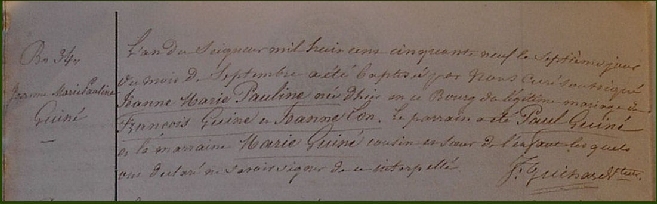 Bn 34e
Jeanne Marie Pauline
Guiné
L'an du Seigneur mil huit cent cinquante neuf le Septième jour
du mois de Septembre a été baptisée par Nous Curé soussigné
Jeanne Marie Pauline née d'hier en ce Bourg du légitime mariage de
François Guiné et Jeanne Con. Le parrain a été Paul Guiné
et la marraine Marie Guiné cousin et sœur de l'enfant lesquels
ont déclaré ne savoir signer de ce interpellé
J. Guichard Curé